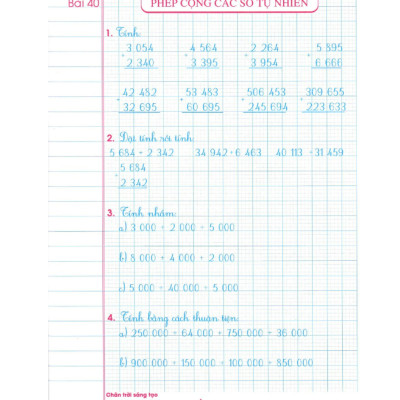 Bài 40
PHÉP CỘNG CÁC SỐ TỰ NHIÊN
1. Tính:
3 054 4 564 2 264 5 895
+ + + +
2 340 3 395 3 954 6 666
42 482 53 483 506 453 309 655
+ + + +
32 695 60 695 245 694 223 633
2. Đặt tính rồi tính:
5 684 + 2 342 34 942 + 6 463 40 113 + 31 459
5 684
+
2 342
3. Tính nhẩm:
a) 3 000 + 2 000 + 5 000
b) 8 000 + 4 000 + 2 000
c) 5 000 + 40 000 + 5 000
4. Tính bằng cách thuận tiện:
a) 250 000 + 64 000 + 750 000 + 36 000
b) 900 000 + 150 000 + 100 000 + 850 000
Chân trời sáng tạo